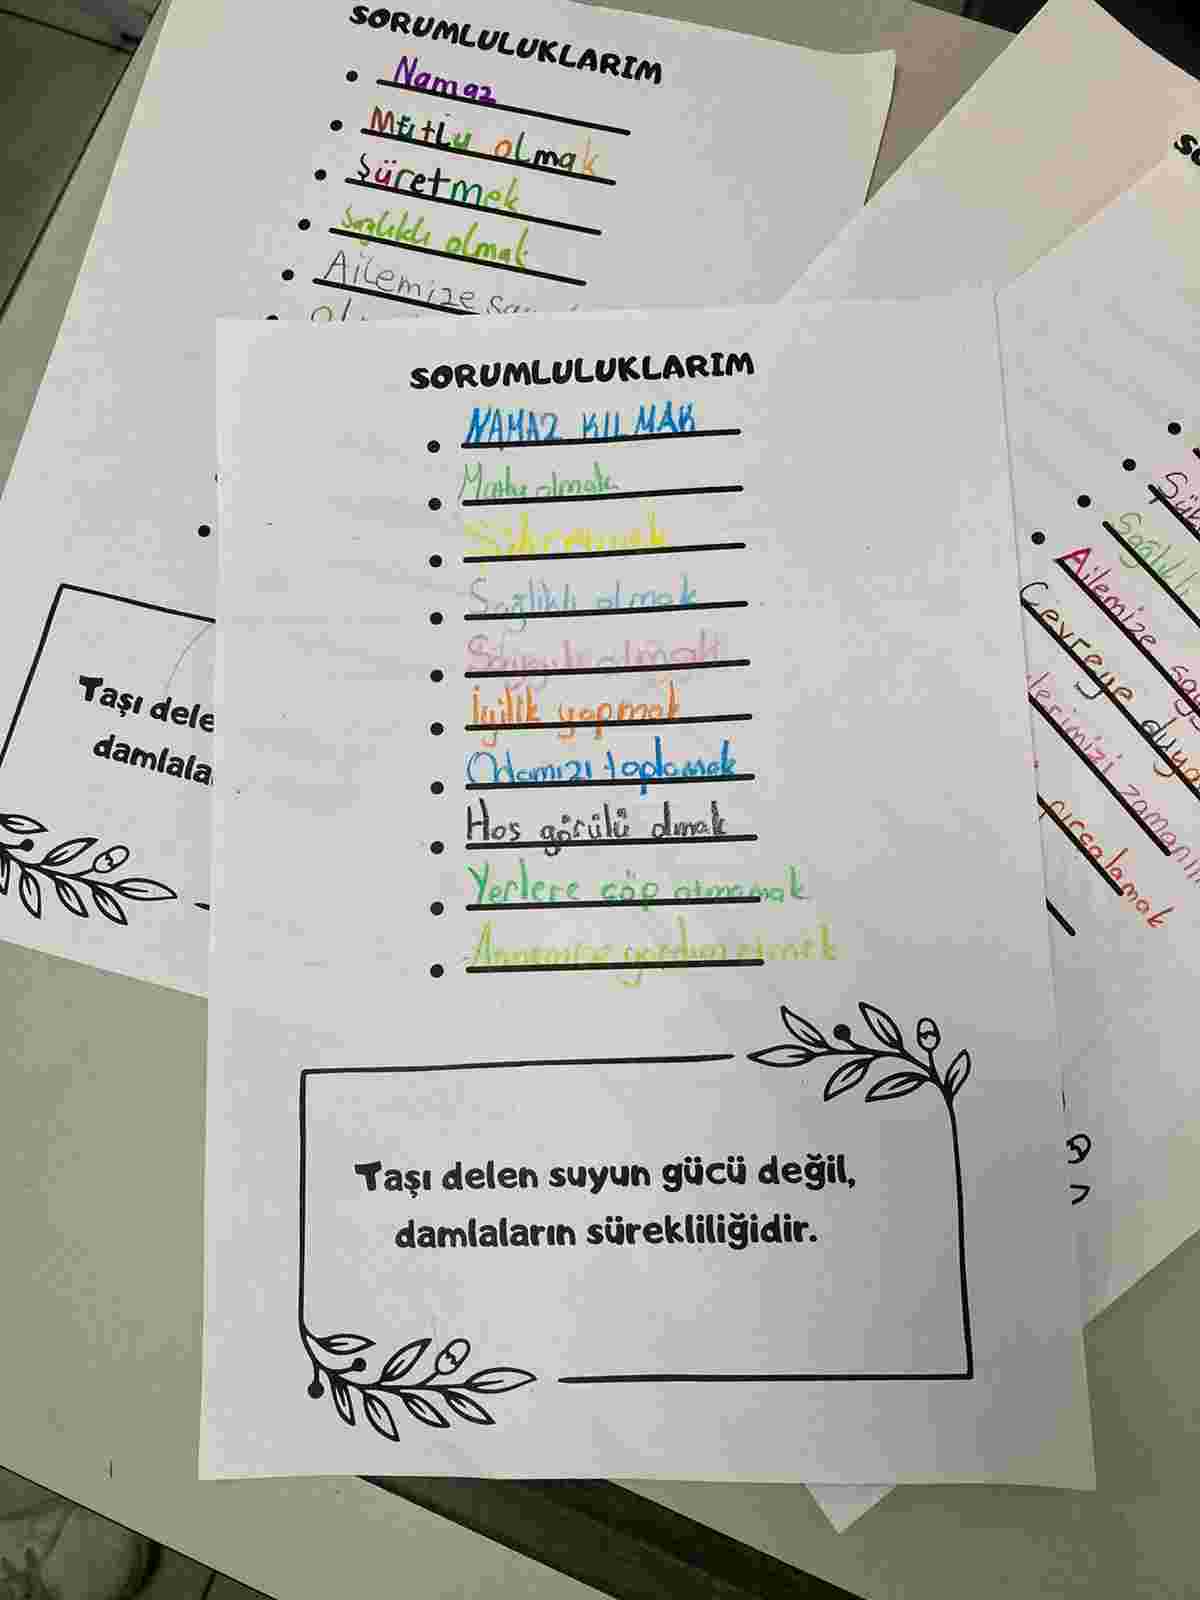 SORUMLULUKLARIM
Namaz
Mutlu olmak
Şüretmek
Sağlıklı olmak
Ailemize
SORUMLULUKLARIM
NAMAZ KILMAK
Mutlu olmak
Şükretmek
Sağlıklı olmak
Saygılı olmak
İyilik yapmak
Odamızı toplamak
Hoş görülü olmak
Yerlere çöp atmamak
Annemize yardım etmek
Taşı delen suyun gücü değil,
damlaların sürekliliğidir.
Taşı dele
damlala
Şük
Sağlıklı
Ailemize say
Çevreye duya
lerimizi zamanın